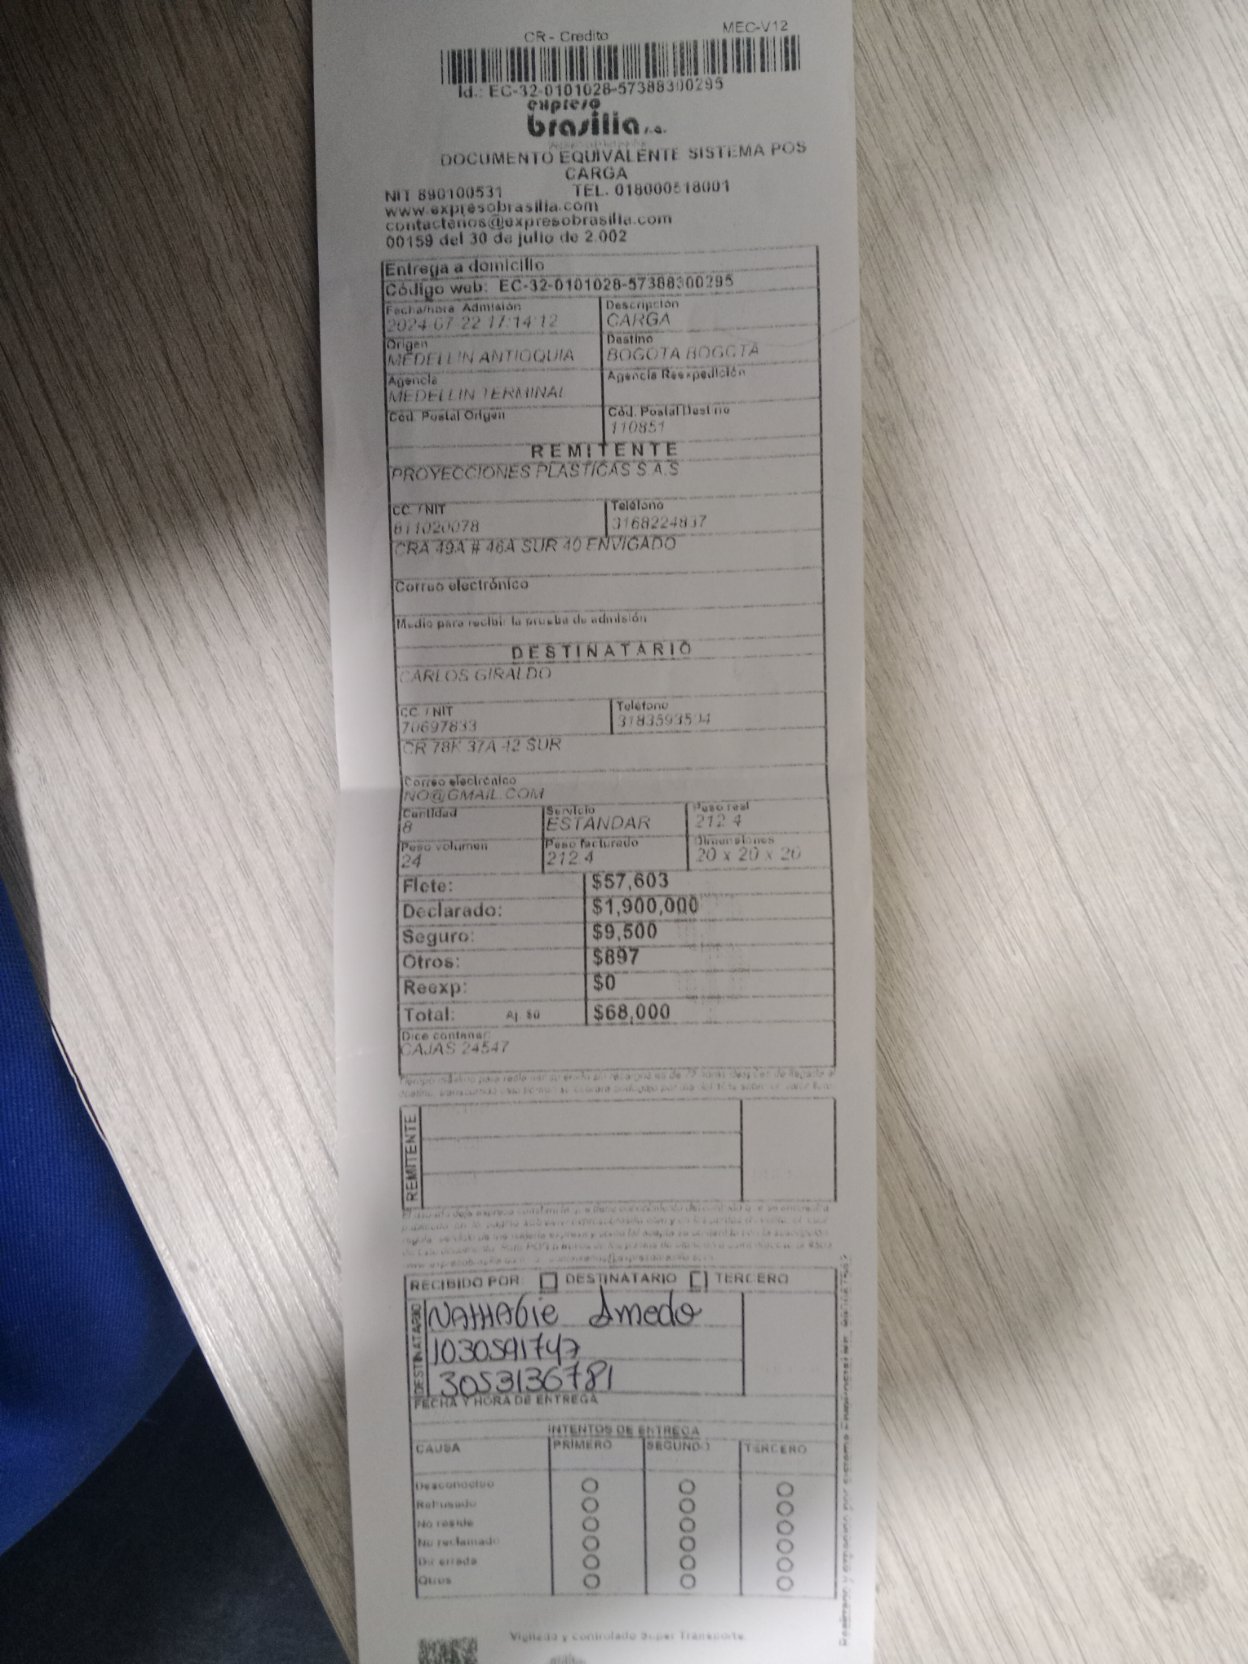 CR - Credito MEC-V12
Id.: EC-32-0101028-57388300295
expreso
brasilia s.a.
DOCUMENTO EQUIVALENTE SISTEMA POS
CARGA
NIT 890100531 TEL. 018000518001
www.expresobrasilia.com
contactenos@expresobrasilia.com
00159 del 30 de julio de 2.002
Entrega a domicilio
Código web: EC-32-0101028-57388300295
Fecha/hora Admisión Descripción
2024-07-22 17:14:12 CARGA
Origen Destino
MEDELLIN ANTIOQUIA BOGOTA BOGOTA
Agencia Agencia Reexpedición
MEDELLIN TERMINAL
Cód. Postal Origen Cód. Postal Destino
110851
REMITENTE
PROYECCIONES PLASTICAS S.A.S
CC. / NIT Teléfono
811020078 3168224837
CRA 49A # 46A SUR 40 ENVIGADO
Correo electrónico
Medio para recibir la prueba de admisión
DESTINATARIO
CARLOS GIRALDO
CC / NIT Teléfono
70697833
CR 78K 37A 42 SUR
Correo electrónico
NO@GMAIL.COM
Cantidad Servicio Peso real
8 ESTANDAR 212.4
Peso volumen Peso facturado Dimensiones
24 212.4 20 x 20 x 20
Flete: $57,603
Declarado: $1,900,000
Seguro: $9,500
Otros: $897
Reexp: $0
Total: Aj. $0 $68,000
Dice contener
CAJAS 24547
REMITENTE
RECIBIDO POR: DESTINATARIO TERCERO
DESTINATARIO
NATHAlie Amedo
1030591747
3053136781
FECHA Y HORA DE ENTREGA
INTENTOS DE ENTREGA
CAUSA PRIMERO SEGUNDO TERCERO
Desconocido
Rehusado
No reside
No reclamado
Dir errada
Otros
Vigilado y controlado Super Transporte.